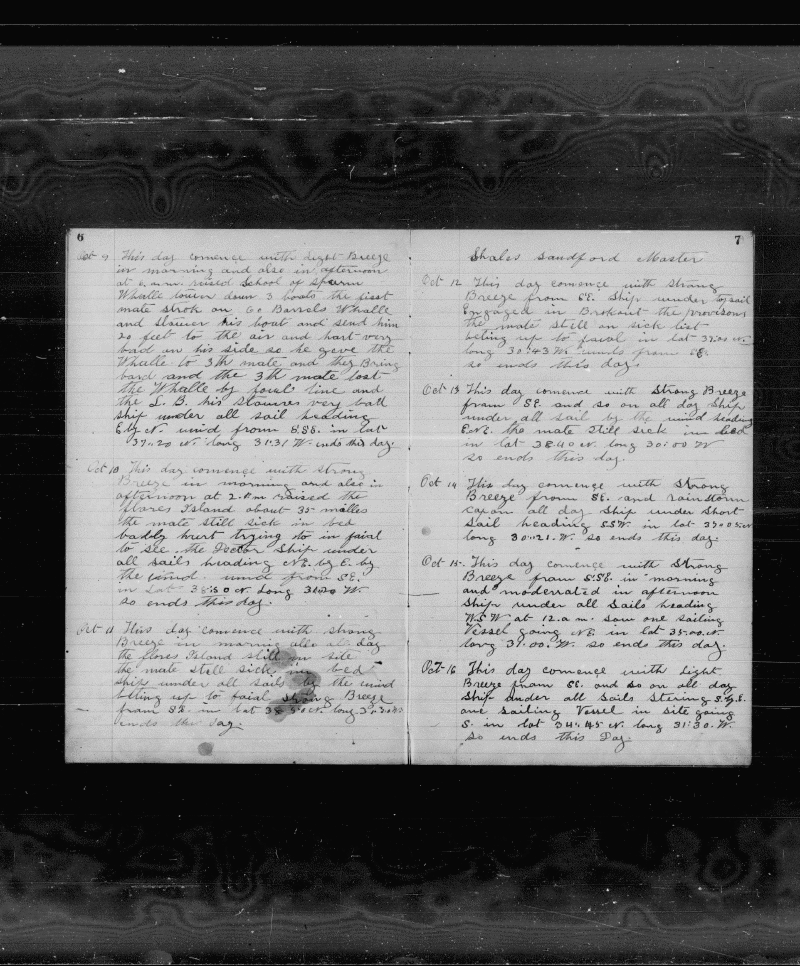 6
Oct 9 This day comence with light Breeze
in morning and also in afternoon
at 6. a.m. raised School of Sparm
Whalle lower down 3 boats the first
mate strok on 60 Barrels Whalle
and his boat and send him
20 feet to the air and hart very
bad on his side so he gave the
Whalle to 3th mate and they Bring
bard and the 3th mate lost
the Whalle by foul line and
the S. B. his very bad
Ship under all sail heading
E by N. wind from SSE. in lat
37.20 N. long 31.31 W. ends this day.
Oct 10 This day comence with strong
Breeze in morning and also in
afternoon at 2. P.m raised the
flores Island about 35 milles
the mate still sick in bed
baddly hurt trying to in faial
to see the Doctor Ship under
all sails heading NE. by E. by
the wind. wind from SE.
in Lat 38:50 N. Long 31:20 W.
so ends this day.
Oct 11 This day comence with strong
Breeze in morning also all day
the flores Island still in site
the mate still sick in bed
ship under all sails by the wind
beting up to faial strong Breeze
from SE. in lat 38:50 N. long
ends the Day.
7
Shales Sandford Master
Oct 12 This day comence with strong
Breeze from SE. Ship under topsail
Engaged in Brokout the provisons
the mate still on sick list
beting up to faial in lat 39.00 N.
long 30:43 W. winds from SE
so ends this day.
Oct 13 This day comence with Strong Breeze
from SE. and so on all day Ship
under all sail by the wind heading
E.N.E. the mate still sick in bed
in lat 38:40 N. long 30:00 W
so ends this day.
Oct 14 This day comence with Strong
Breeze from SE. and rainstorm
all day Ship under Short
Sail heading S.S.W. in lat 37:00 N
long 30:21. W. so ends this day.
Oct 15. This day comence with Strong
Breeze from SSE. in morning
and moderated in afternoon
Ship under all Sails heading
W.S.W. at 12. a.m. saw one sailing
Vessel going NE. in lat 35.00. N.
long 31.00. W. so ends this day.
Oct. 16 This day comence with Light
Breeze from SE. and so on all day
Ship under all Sails Stering S.by.E.
one sailing Vessel in site going
S. in lat 34:45 N. long 31:30. W.
so ends this Day.